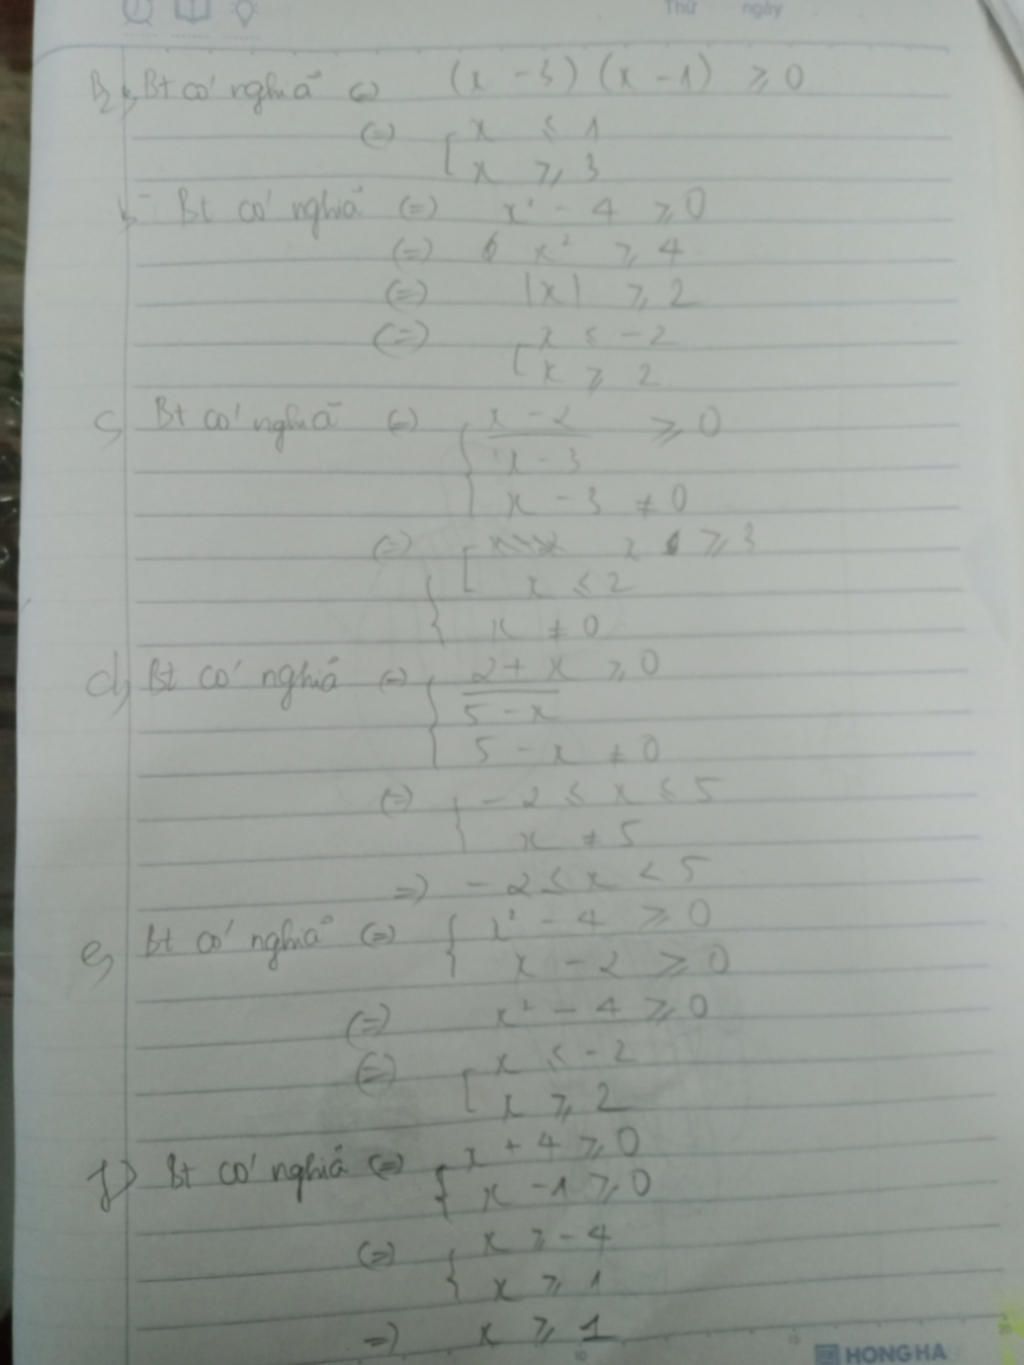 Thứ ngày
B2 a, Bt có nghĩa (=) (x - 3) (x - 1) ≥ 0
(=) [ x ≤ 1
x ≥ 3
b, Bt có nghĩa (=) x² - 4 ≥ 0
(=) x² ≥ 4
(=) |x| ≥ 2
(=) [ x ≤ -2
x ≥ 2
c, Bt có nghĩa (=) { x - 2 ≥ 0
x - 3
x - 3 ≠ 0
(=) { [ x ≥ 3
x ≤ 2
x ≠ 0
d, Bt có nghĩa (=) { 2 + x ≥ 0
5 - x
5 - x ≠ 0
(=) { - 2 ≤ x ≤ 5
x ≠ 5
=) - 2 ≤ x < 5
e, Bt có nghĩa (=) { x² - 4 ≥ 0
x - 2 ≥ 0
(=) x² - 4 ≥ 0
(=) [ x ≤ - 2
x ≥ 2
f) Bt có nghĩa (=) { x + 4 ≥ 0
x - 1 ≥ 0
(=) { x ≥ - 4
x ≥ 1
=) x ≥ 1
HONG HA